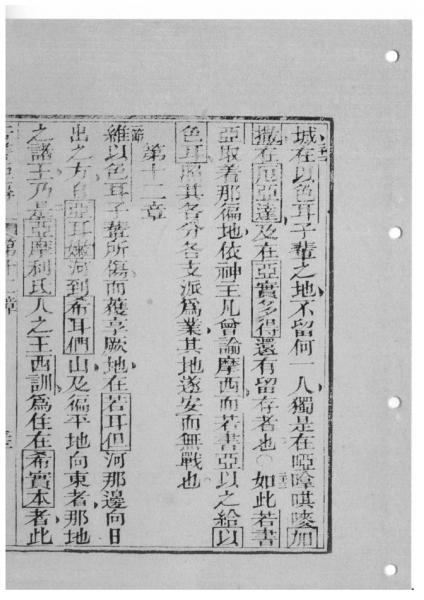 城在以色耳子輩之地不留何一人獨是在啞唫唭嘜加
撒在厄亞達及在亞實多得還有留存者也○如此若書
亞取着那徧地依神王凡曾論摩西而若書亞以之給以
色耳照其各分各支派為業其地遂安而無戰也
第十二章
維以色耳子輩所傷而獲享厥地在若耳但河那邊向日
出之方自亞耳嫩河到希耳們山及徧平地向東者那地
之諸王乃是亞摩利氏人之王西訓為住在希實本者此
第十二章